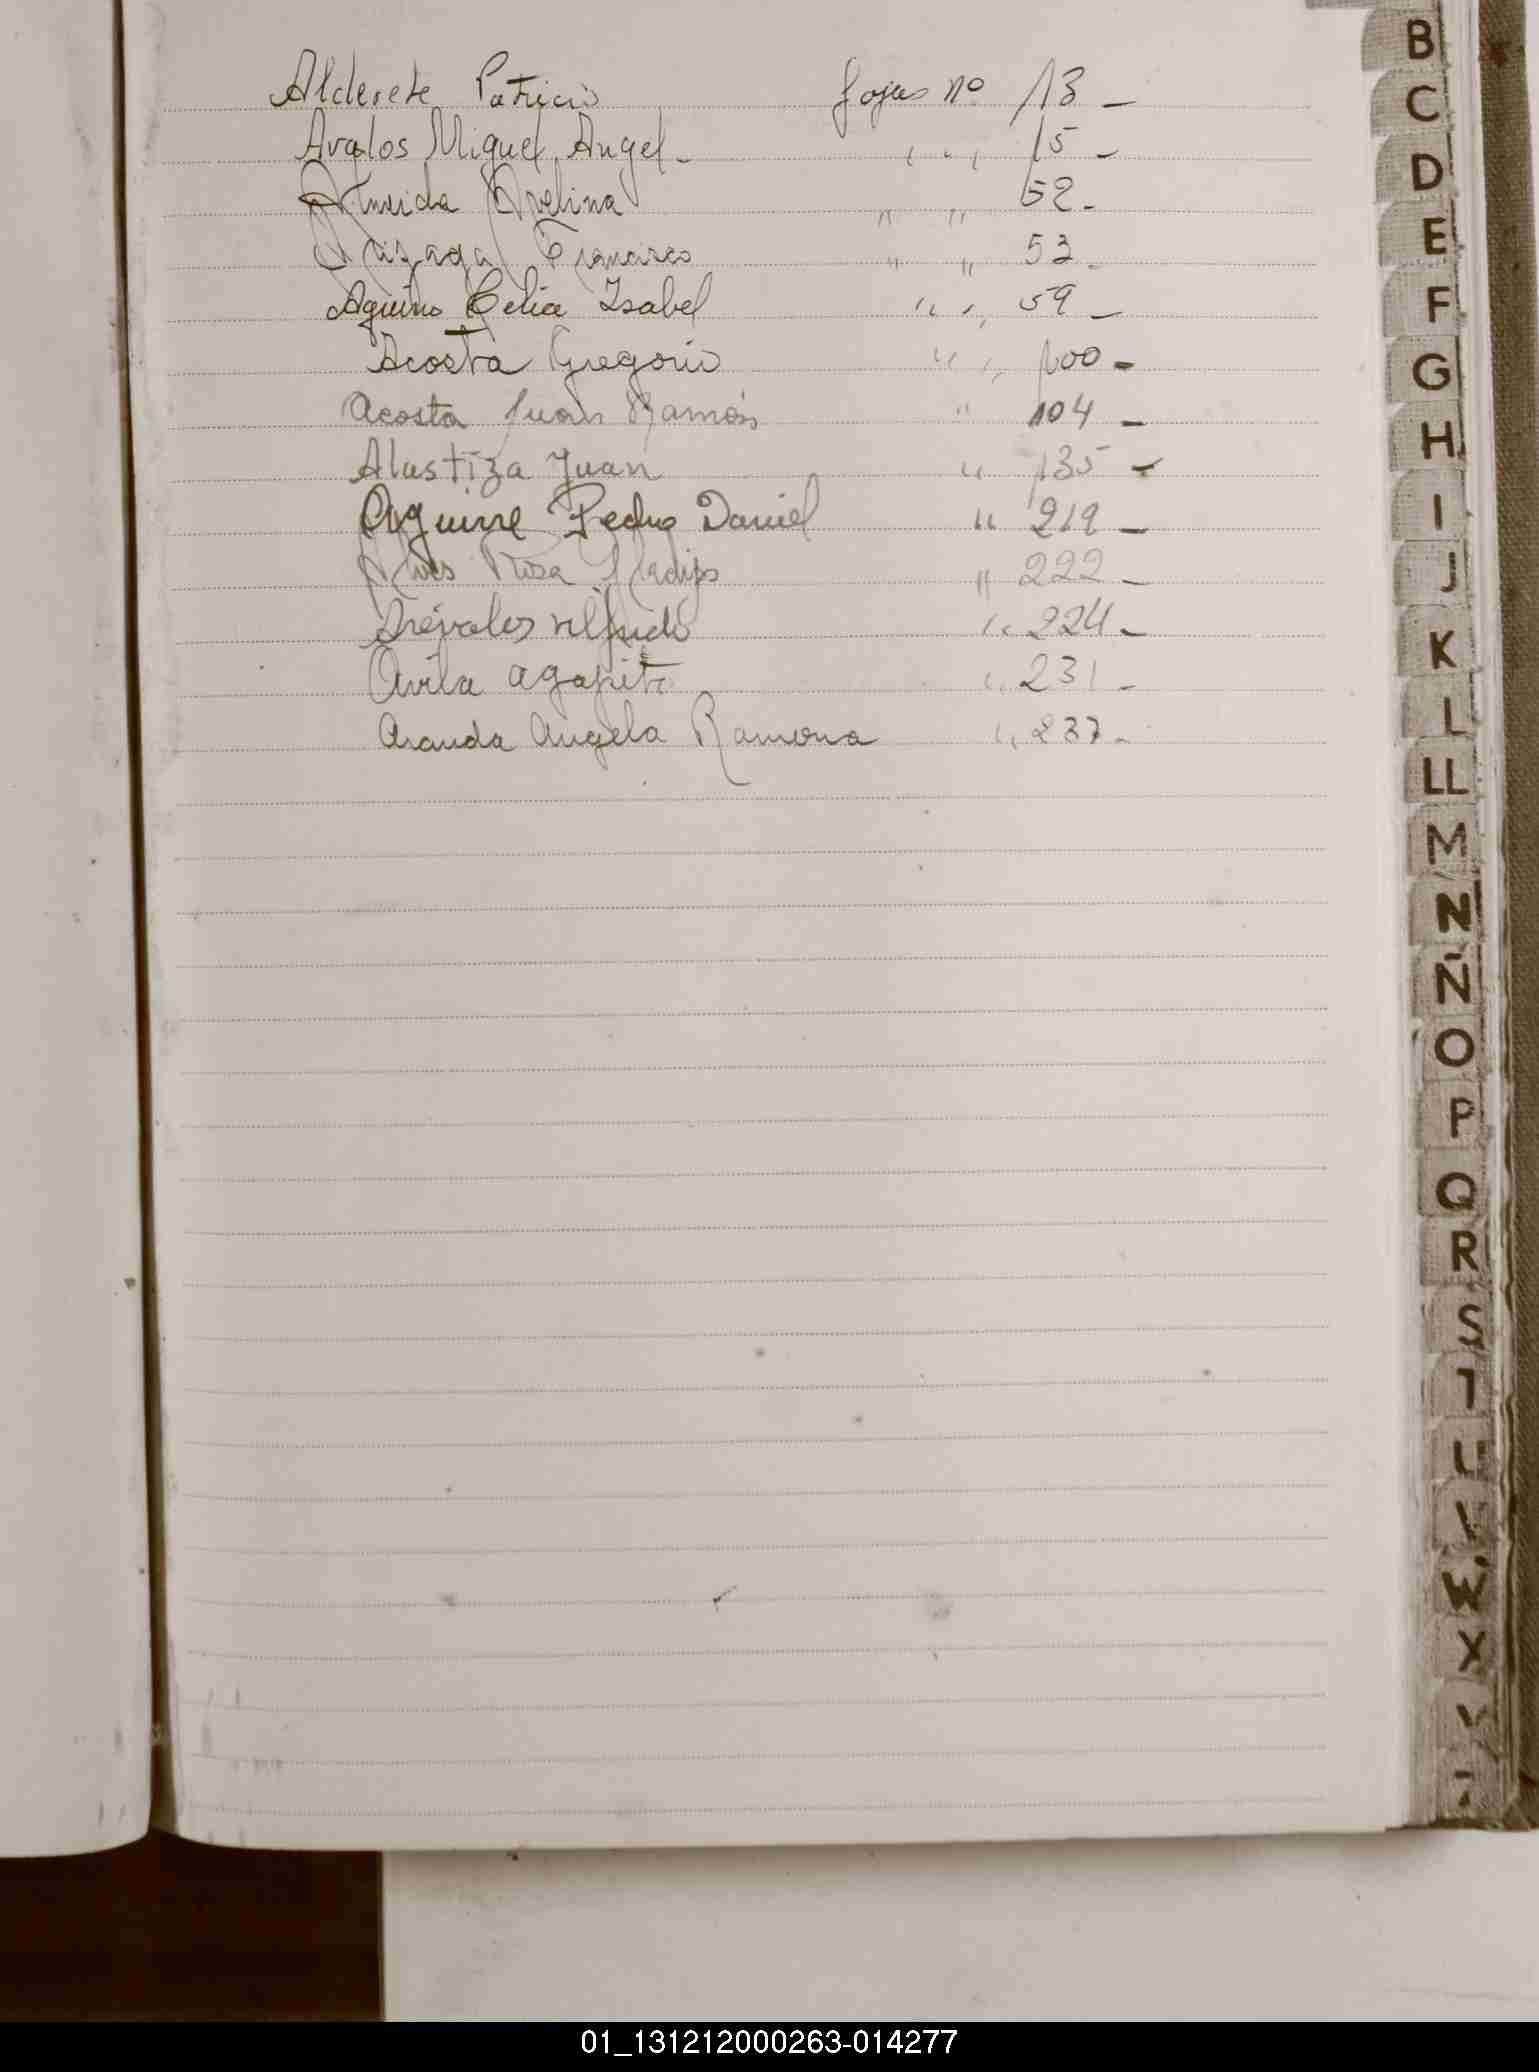 Alderete Patricio fojas nº 13 -
Avalos Miguel Angel - " " 15 -
Almeida Avelina " " 52 -
Arizaga Francisco " " 53 -
Aquino Celia Isabel " " 59 -
Acosta Gregorio " " 100 -
Acosta Juan Ramón " 104 -
Alustiza Juan " 135 -
Aguirre Pedro Daniel " 219 -
Rosa Gladys " 222 -
Arévalos " 224 -
Avila Agapito " 231 -
Aranda Angela Ramona " 237 -
B
C
D
E
F
G
H
I
J
K
L
LL
M
N
Ñ
O
P
Q
R
S
T
U
V
W
X
Y
01_131212000263-014277